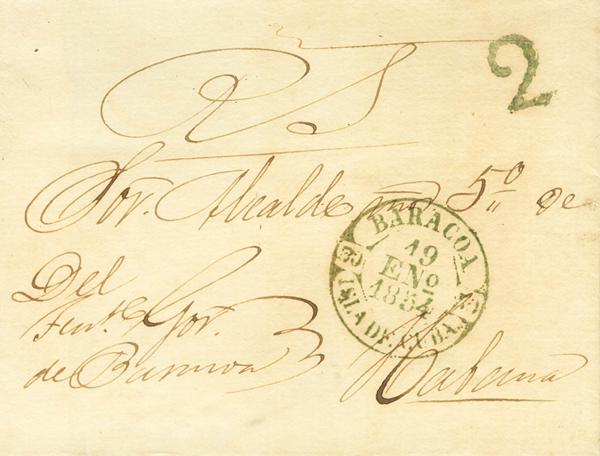 R S
2
Sor. Alcalde mor 5º de
BARACOA
19
ENº
1854
ISLA DE CUBA.
Del
Tente Gor.
de Baracoa
Habana